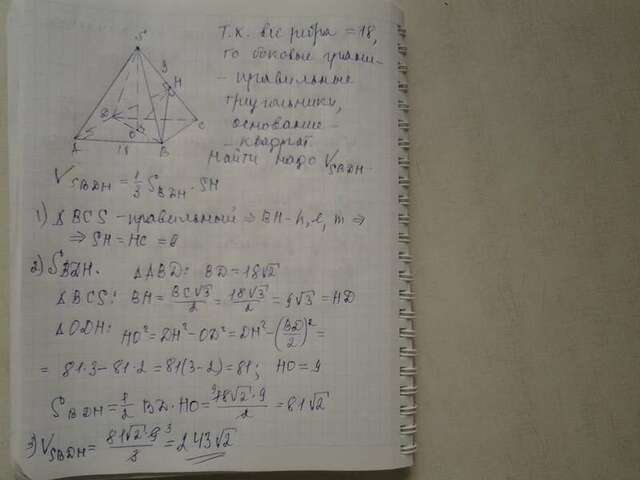 Т.к. все ребра = 18,
то боковые грани -
- правильные
треугольники,
основание -
- квадрат
Найти надо V_SBDH.
S
9
H
D
C
O
A
18
B
V_SBDH = 1/3 S_BDH · SH
1) Δ BCS - правильный ⇒ BH - h, l, m ⇒
⇒ SH = HC = 9
2) S_BDH. ΔABD: BD = 18√2
ΔBCS: BH = BC√3/2 = 18√3/2 = 9√3 = HD
ΔODH: HO² = DH² - OD² = DH² - (BD/2)² =
= 81·3 - 81·2 = 81(3-2) = 81; HO = 9
S_BDH = 1/2 BD · HO = 18√2 · 9/2 = 81√2
3) V_SBDH = 81√2 · 9/3 = 243√2